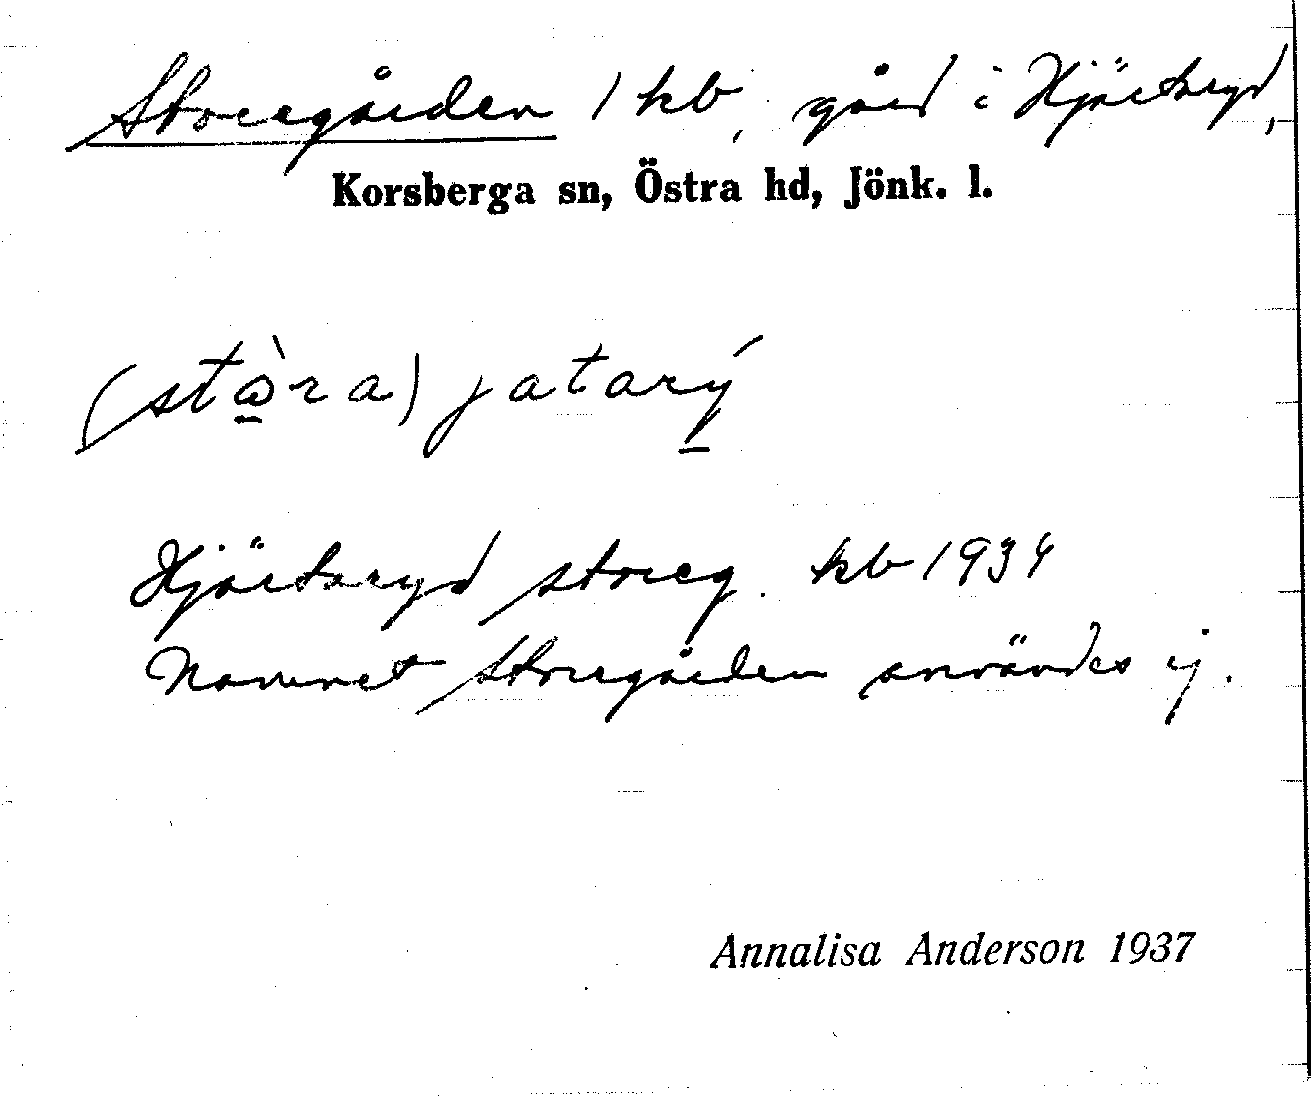 Storegården 1 kb, gård i Hjärtaryd,
Korsberga sn, Östra hd, Jönk. l.
(stò̱ra) jatarý̱
Hjärtaryd storeg. kb 1934
Namnet Storegården användes ej.
Annalisa Anderson 1937